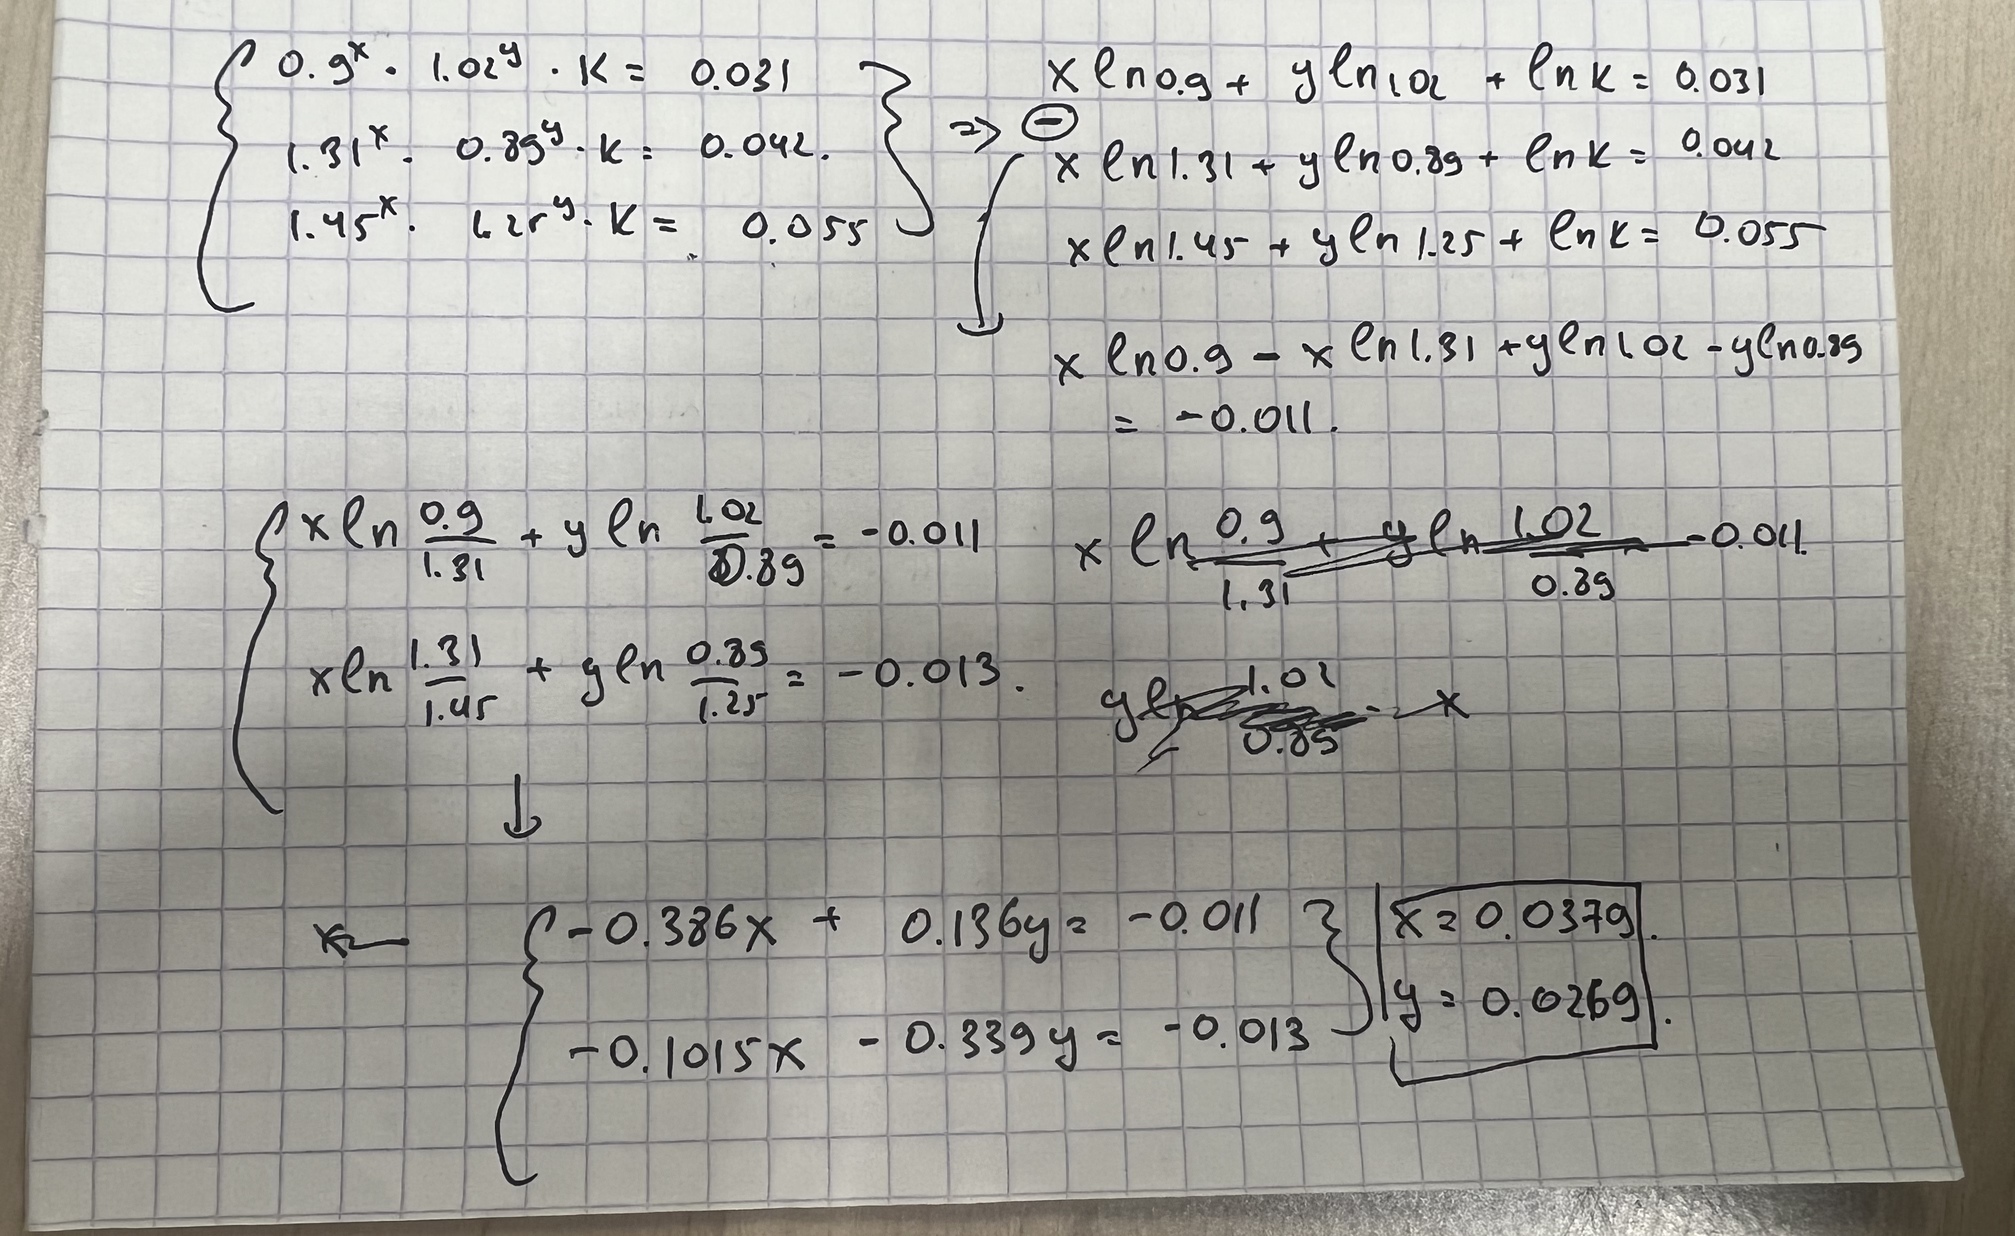 0.9^x · 1.02^y · K = 0.031
1.31^x · 0.89^y · K = 0.042.
1.45^x · 1.25^y · K = 0.055
=> ⊖
x ln 0.9 + y ln 1.02 + ln K = 0.031
x ln 1.31 + y ln 0.89 + ln K = 0.042
x ln 1.45 + y ln 1.25 + ln K = 0.055
x ln 0.9 - x ln 1.31 + y ln 1.02 - y ln 0.89
= -0.011.
x ln 0.9/1.31 + y ln 1.02/0.89 = -0.011
x ln 1.31/1.45 + y ln 0.89/1.25 = -0.013.
x ln 0.9/1.31 + y ln 1.02/0.89 -0.011.
y ln 1.02/0.89 - x
x
-0.386x + 0.136y = -0.011
-0.1015x - 0.339y = -0.013
x = 0.0379.
y = 0.0269.